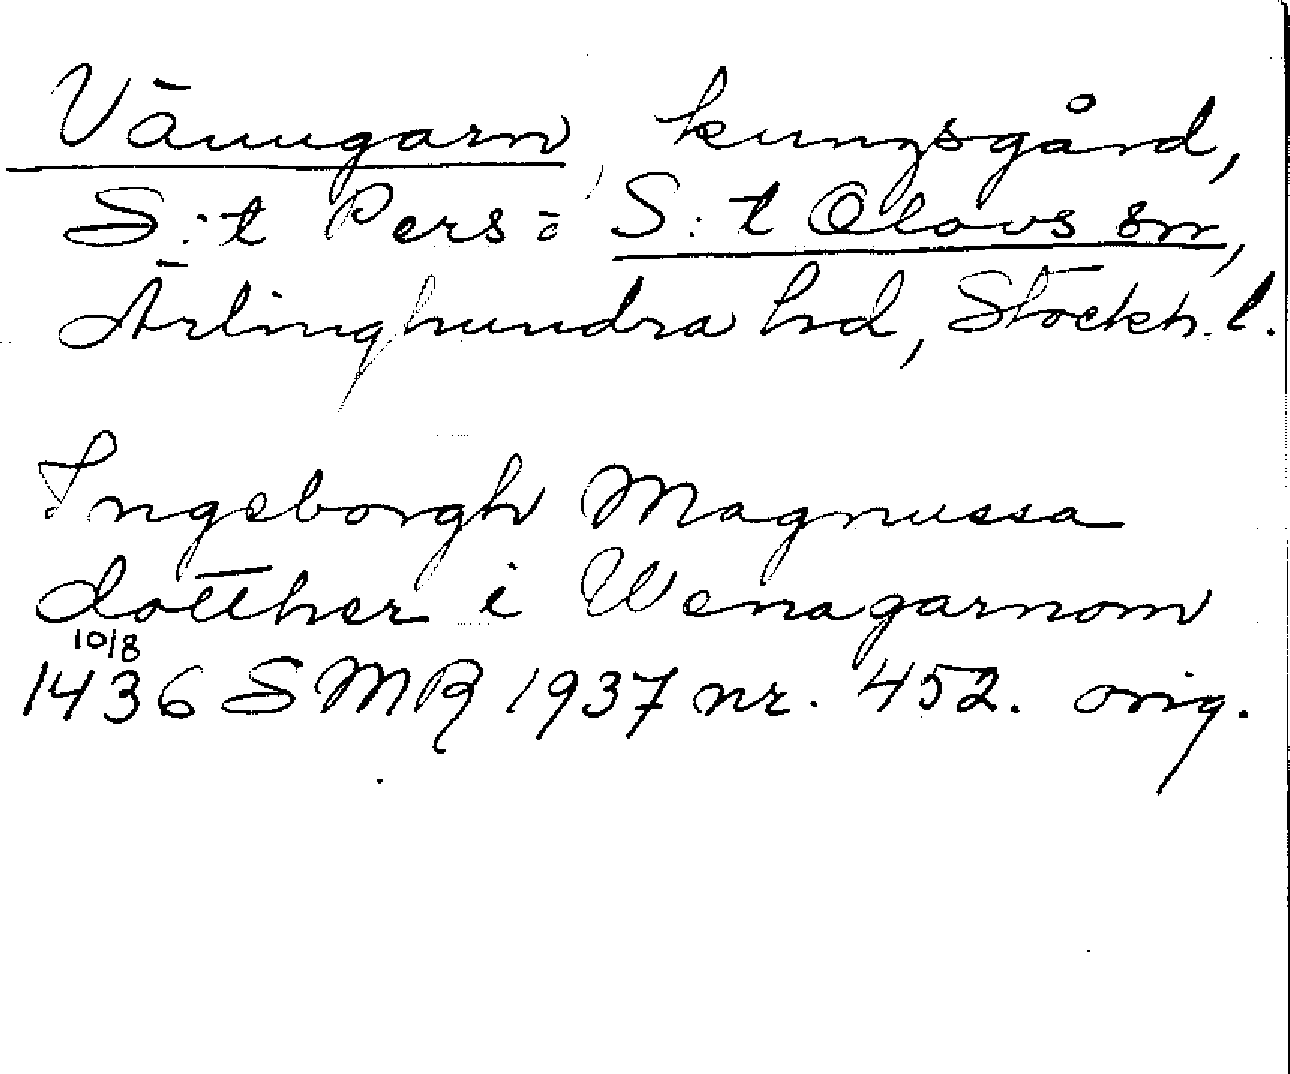 Vänngarn, kungsgård,
S:t Pers = S:t Olovs sn,
Ärlinghundra hd, Stockh. l.
Ingeborgh Magnussa
dotther i Wenagarnom
10/8
1436 SMR 1937 nr. 452. orig.